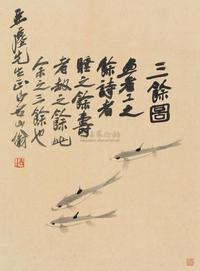 三餘圖
画者工之
餘詩者
睡之餘壽
者劫之餘此
余之三餘也
先生正白石山翁